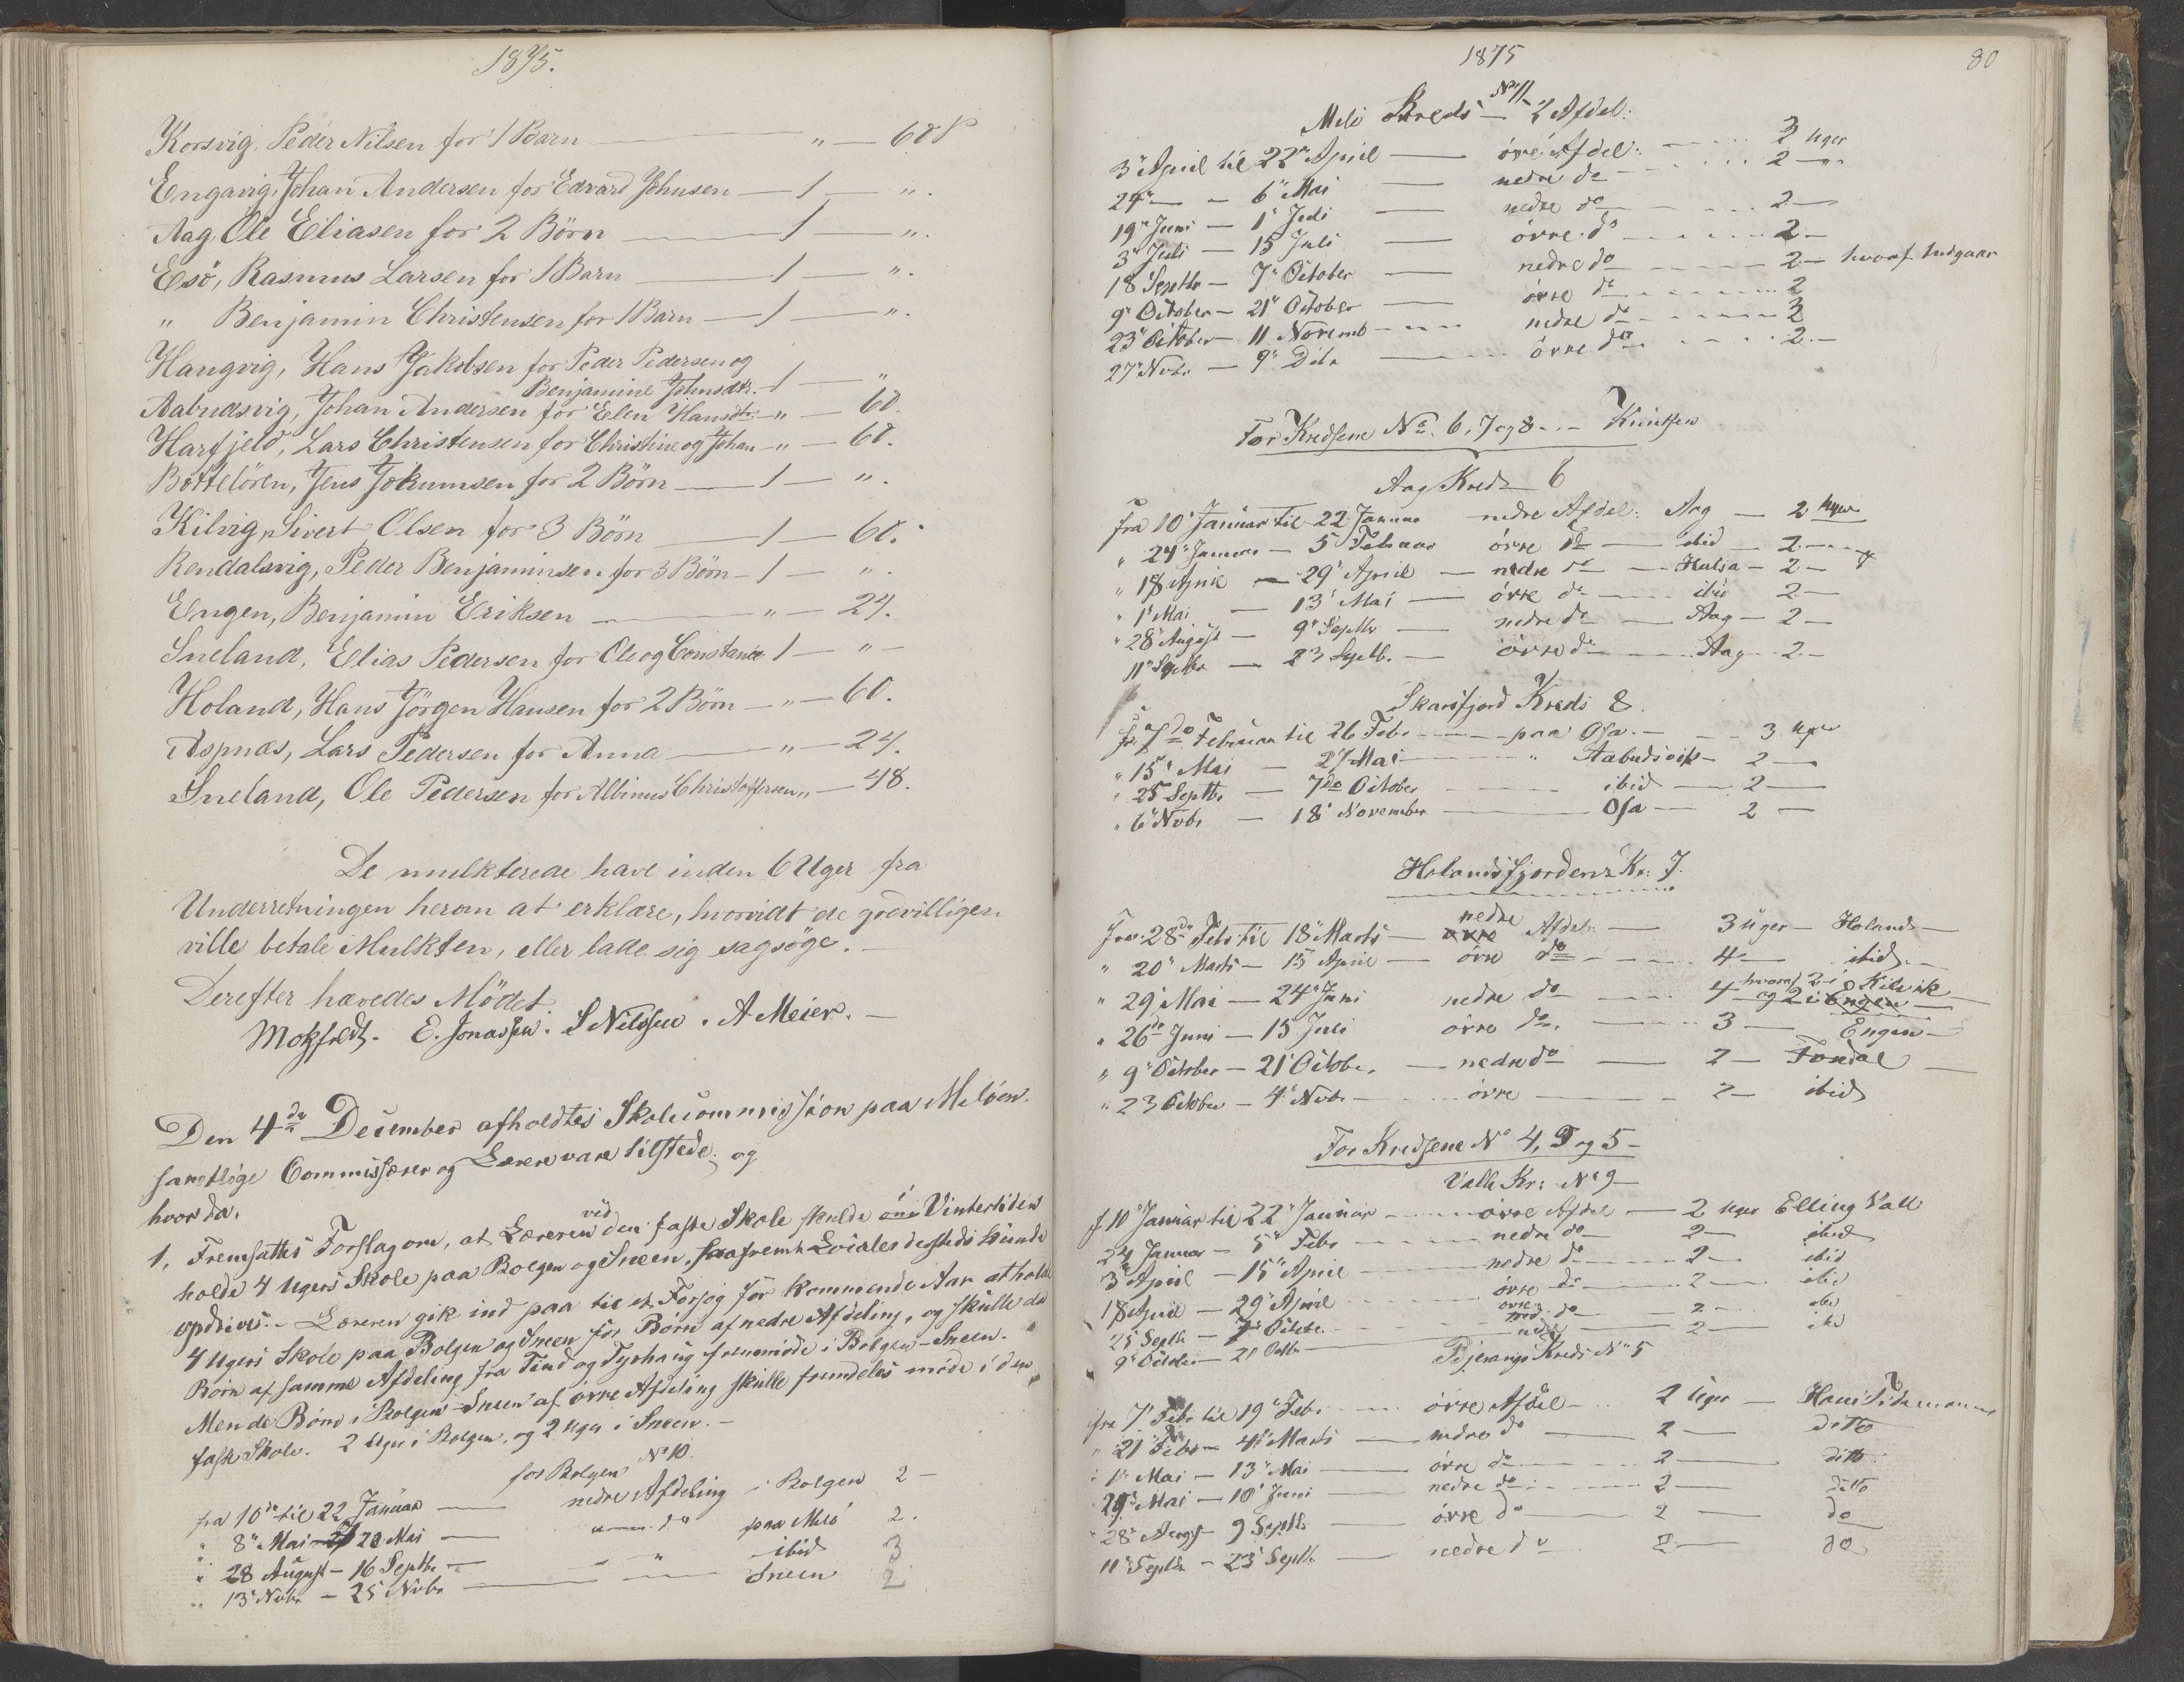 1875.
Korsvig, Peder Nilsen for 1 Barn — " — 60 s
Engavig, Johan Andersen for Edvard Johnsen — 1 — ".
Aag, Ole Eliasen for 2 Börn — 1 — ".
Elsö, Rasmus Larsen for 1 Barn — 1 — ".
" Benjamin Christensen for 1 Barn — 1 — ".
Haugvig, Hans Jakobsen for Peder Pedersen og
Benjamine Johnsdtr. 1 — "
Aabudsvig, Johan Andersen for Elen Hansdtr. " — 60.
Harfjeld, Lars Christensen for Christine og Johan — " — 60.
Bottelören, Jens Jokumsen for 2 Börn — 1 — ".
Kilvig, Sivert Olsen for 3 Börn — 1 — 60.
Rendalsvig, Peder Benjaminsen for 3 Börn — 1 — ".
Engen, Benjamin Eriksen — " — 24.
Sneland, Elias Pedersen for Ole og Constance 1 — " —
Holand, Hans Jörgen Hansen for 2 Börn — " — 60.
Aspnæs, Lars Pedersen for Anna — " — 24.
Sneland, Ole Pedersen for Albinus Christoffersen " — 48.
De mulkterede have inden 6 Uger fra
Underretningen herom at erklære, hvorvidt de godvilligen
ville betale Mulkten, eller lade sig sagsöge. —
Derefter hævedes Mödet.
Motzfeldt. E. Jonassen. S Nilssen. A Meier. —
Den 4de December afholdtes Skolecommission paa Melöen.
samtlige Commissærer og Lærere vare tilstede, og
hvorda.
1, Fremsattes Forslag om, at Læreren ved den faste Skole skulde i Vintertiden
holde 4 Ugers Skole paa Bolgen og Sneen, saafremt Locale dersteds kunde
opdrives. — Læreren gik ind paa til et Forsøg for kommende Aar at holde
4 Ugers Skole paa Bolgen og Sneen for Börn af nedre Afdeling, og skulde da
Börn af samme Afdeling fra Teind og Tyshaug fremmöde i Bolgen – Sneen.
Men de Börn i Bolgen – Sneen af övre Afdeling skulle fremdeles möde i den
faste Skole. 2 Uger i Bolgen, og 2 Uger i Sneen. —
for Bolgen No 10.
fra 10de til 22 Januar — nedre Afdeling i Bolgen 2 —
" 8" Mai – 20 Mai — " do paa Melö 2.
" 28 August – 16 Septbr — " ibid 3
" 13" Novbr – 25 Novbr — Sneen 2
1875
80
Melö Kreds No 11 — 2 Afdel:
3" April til 22" April — övre Afdel: — 3 Uger
24" — 6" Mai — nedre do — 2 — "
19" Juni — 1" Juli — nedre do — 2 —
3" Juli — 15 Juli — övre do — 2 —
18 Septbr — 7" October — nedre do — 2 — hvoraf Indgaar
9" October — 21" October — övre do — 2
23" October — 11 Novemb — nedre do — 3
27" Novbr — 9" Debr — övre do — 2 —
For Kredsene No 6, 7 og 8 — Knutsen
Aag Kreds 6
fra 10' Januar til 22 Januar nedre Afdel: Aag — 2 Uger
" 24" Januar — 5 Februar övre do — ibid — 2 —
" 18 April — 29' April — nedre do — Halsa — 2 —
" 1' Mai — 13' Mai — övre do — ibid 2 —
" 28' August — 9" Septbr — nedre do — Aag — 2 —
11" Septbr — 23 Septb. — övre do — Aag — 2 —
Skarsfjord Kreds 8.
fr. 7de Februar til 26 Febr — paa Osa. — 3 Uger
" 15' Mai — 27 Mai — " Aabudsvik — 2 —
" 25 Septbr — 7de October — ibid — 2 —
" 6" Novbr — 18' November — Osa — 2 —
Holandsfjordens Kr: 7.
Fra 28de Febr til 18" Marts — övre nedre Afdel: — 3 Uger — Holand —
" 20" Marts — 15 April — övre do — 4 — ibid —
" 29' Mai — 24" Juni nedre do — 4 hvoraf 2 i Kilvik
og 2 i Engen
" 26de Juni — 15 Juli övre do. — 3 — Engen —
" 9' October — 21' October — nedre do — 2 — Fondal —
" 23 October — 4' Novbr — övre — 2 — ibid
For Kredsene No 4, 9 og 5 —
Valle Kr: No 9 —
f 10' Januar til 22" Januar — övre Afdel — 2 Uger Elling Vall
24 Januar — 5" Febr — nedre do — 2 — ibid
3" April — 15" April — nedre do — 2 — ibid
18 April — 29' April — övre do — 2 — ibid
25 Septbr — 7' Octobr. — övre do — 2 — ibid
9" October — 21 Octbr — nedre — 2 — ibid
Pejerangs Kreds No 5
fra 7' Febr til 19" Febr — övre Afdel — 2 Uger — Hans
" 21' Febr — 4" Marts — nedre do — 2 — ditto
" 1" Mai — 13" Mai — övre do — 2 — ditto
29" Mai — 10' Juni — nedre do — 2 — ditto
28" August 9 Septbr — övre do — 2 — do
11" Septbr — 23' Septbr — nedre do — 2 — do